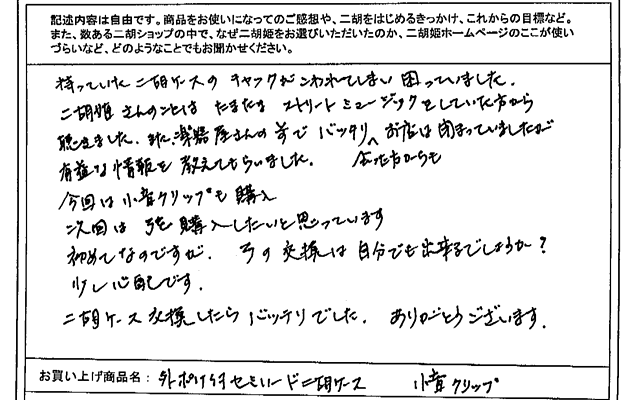 記述内容は自由です。商品をお使いになってのご感想や、二胡をはじめるきっかけ、これからの目標など。
また、数ある二胡ショップの中で、なぜ二胡姫をお選びいただいたのか、二胡姫ホームページのここが使い
づらいなど、どのようなことでもお聞かせください。
持っていた二胡ケースのチャックがこわれてしまい困っていました。
二胡姫さんのことは たまたま ストリートミュージックをしていた方から
聴きました。また、楽器屋さんの前で バッタリ、お店は閉まっていましたが
会った方からも
有益な情報を教えてもらいました。
今回は小音クリップも購入
次回は弓を購入したいと思っています
初めてなのですが、弓の交換は自分でも出来るでしょうか?
少し心配です。
二胡ケース交換したらバッチリでした。ありがとうございます。
お買い上げ商品名: 外ポケ付セミハード二胡ケース 小音クリップ